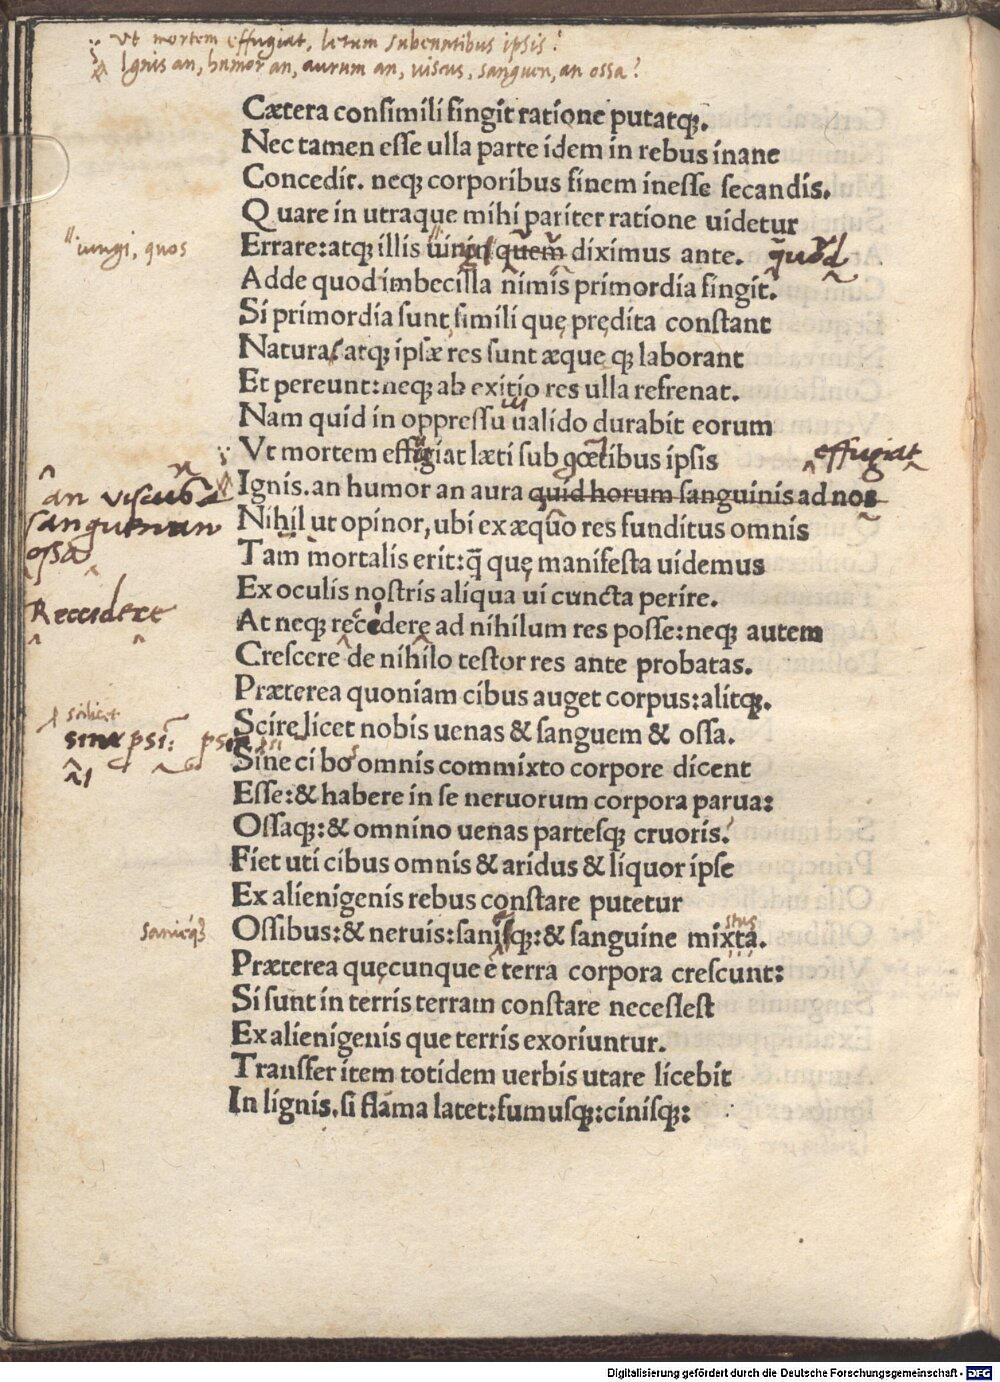 Ut mortem effugiat, letum subeuntibus ipsis?
Ignis an, humor an, aurum an, viscus, sanguen, an ossa?
Cætera consimili fingit ratione putatqꝫ.
Nec tamen esse ulla parte idem in rebus inane
Concedit. neqꝫ corporibus finem inesse secandis.
Quare in utraque mihi pariter ratione uidetur
iungi, quos
Errare: atqꝫ illis quem diximus ante. quod
Adde quod imbecilla nimis primordia fingit.
Si primordia sunt, simili quę prędita constant
Natura: atqꝫ ipsæ res sunt æque qꝫ laborant
Et pereunt: neqꝫ ab exitio res ulla refrenat.
Nam quid in oppressu ualido durabit eorum
Vt mortem effugiat læti sub ipsis effugiat
Ignis. an humor an aura quid horum sanguinis ad nos
an viscus
sanguen an
ossa
Nihil ut opinor, ubi ex æquo res funditus omnis
Tam mortalis erit: q̄ quę manifesta uidemus
Ex oculis nostris aliqua ui cuncta perire.
Reccidere
At neqꝫ recedere ad nihilum res posse: neqꝫ autem
Crescere de nihilo testor res ante probatas.
Præterea quoniam cibus auget corpus: alitqꝫ.
scilicet
Scire licet nobis uenas & sanguem & ossa.
Sine cibo omnis commixto corpore dicent
Esse: & habere in se neruorum corpora parua:
Ossaqꝫ: & omnino uenas partesqꝫ cruoris.
Fiet uti cibus omnis & aridus & liquor ipse
Ex alienigenis rebus constare putetur
sanieqꝫ
Ossibus: & neruis: sanisqꝫ: & sanguine mixta.
Præterea quęcunque e terra corpora crescunt:
Si sunt in terris terram constare necessest
Ex alienigenis que terris exoriuntur.
Transfer item totidem uerbis utare licebit
In lignis. si flāma latet: fumusqꝫ: cinisqꝫ:
Digitalisierung gefördert durch die Deutsche Forschungsgemeinschaft - DFG